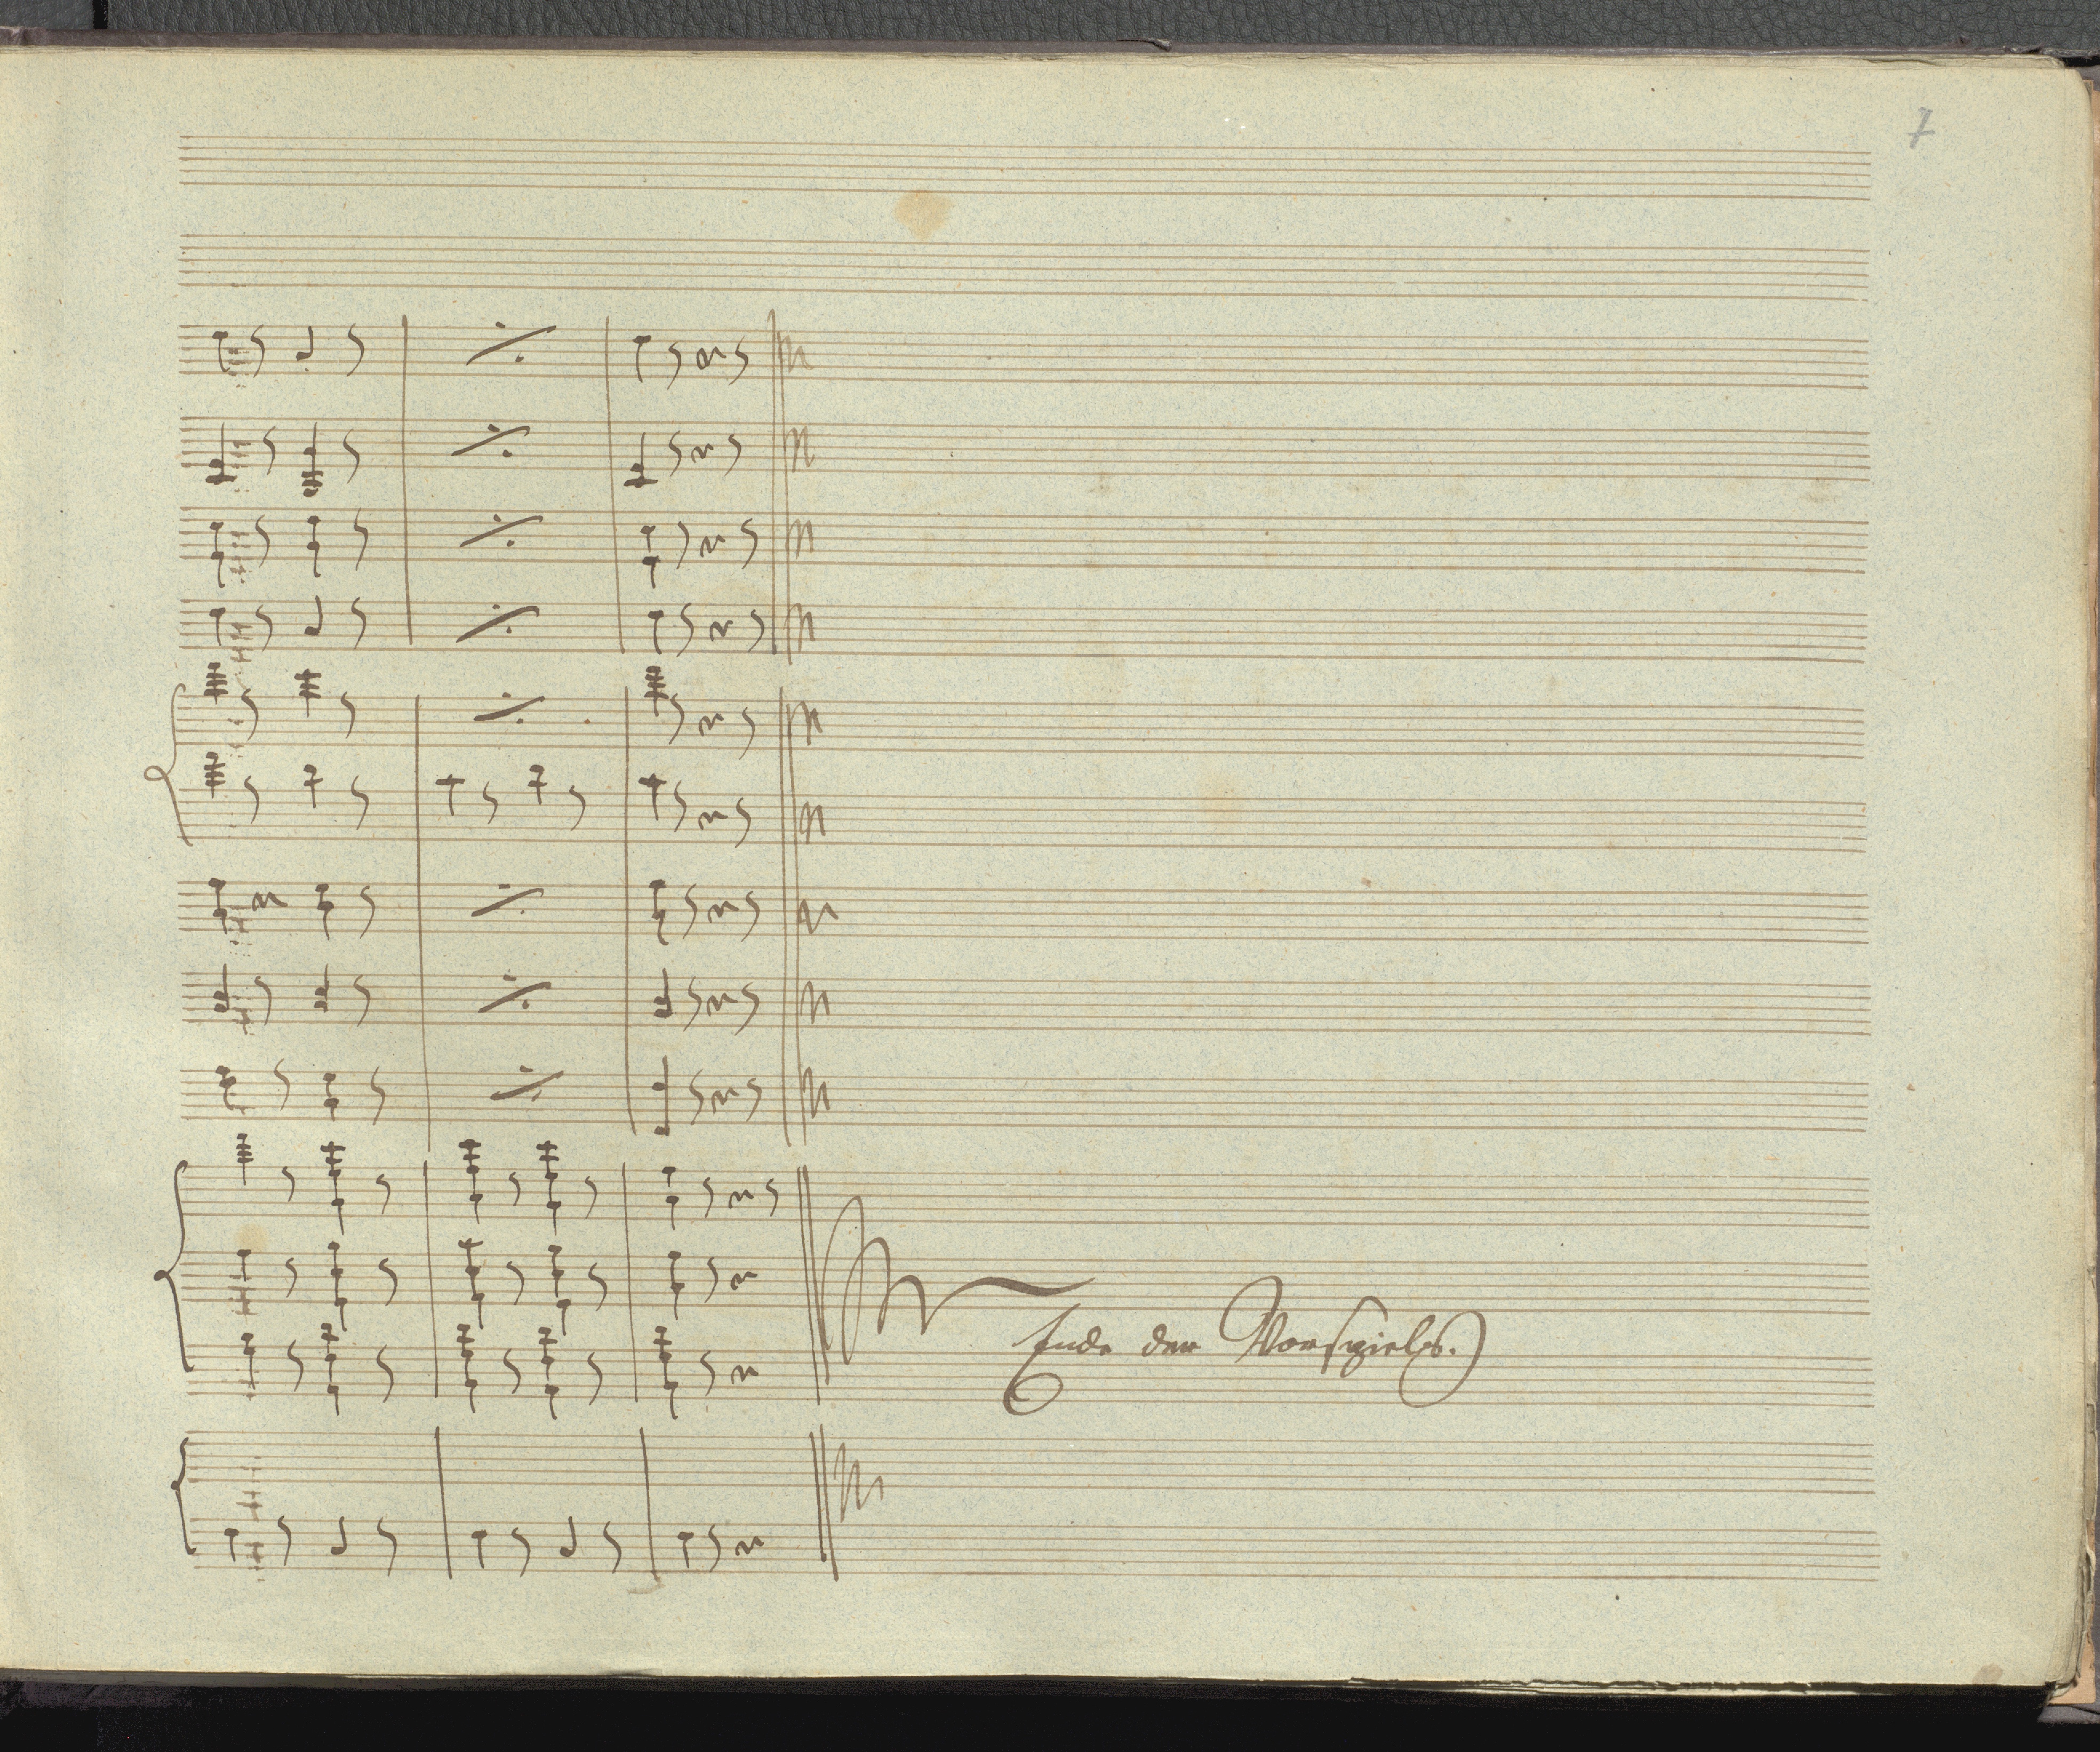 7
Ende des Vorspiels.